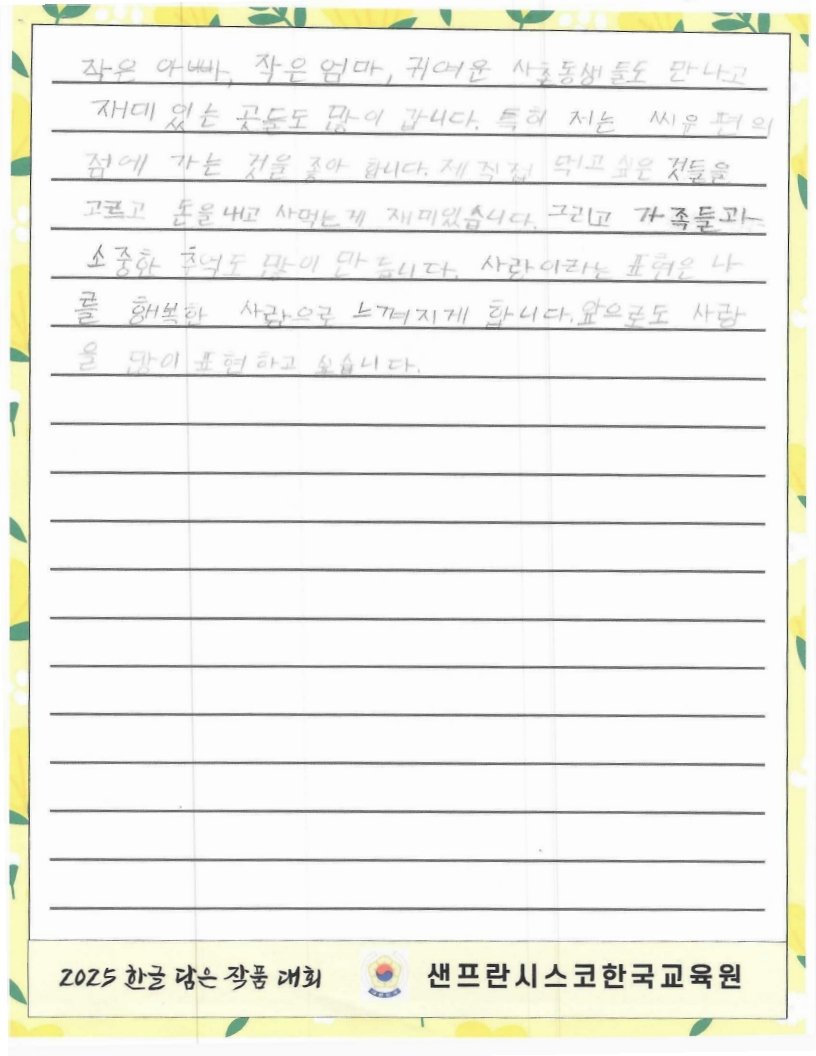 작은 아빠, 작은 엄마, 귀여운 사촌동생들도 만나고
재미 있는 곳들도 많이 갑니다. 특히 저는 씨유 편의
점에 가는 것을 좋아 합니다. 제 직접 먹고 싶은 것들을
고르고 돈을 내고 사먹는게 재미있습니다. 그리고 가족들과
소중한 추억도 많이 만듭니다. 사랑이라는 표현은 나
를 행복한 사람으로 느껴지게 합니다. 앞으로도 사랑
을 많이 표현하고 싶습니다.
2025 한글 담은 작품 대회
샌프란시스코한국교육원